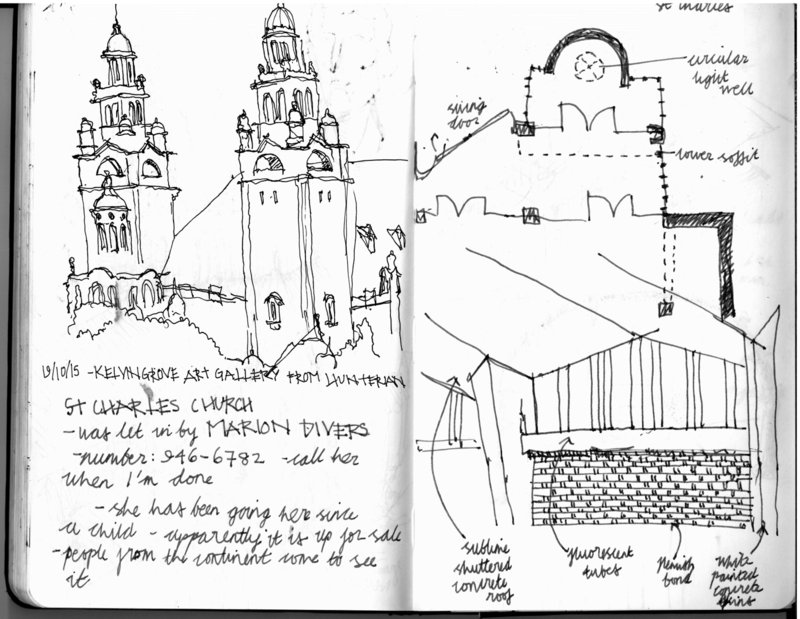 19/10/15 - KELVINGROVE ART GALLERY FROM HUNTERIAN
ST CHARLES CHURCH
- was let in by MARION DIVERS
- number: 946-6782 - call her
when I'm done
- she has been going here since
a child - apparently it is up for sale
- people from the continent come to see
it
st maries
circular
light
well
swing
door
lower soffit
sublime
shuttered
concrete
roof
fluorescent
tubes
flemish
bond
white
painted
concrete